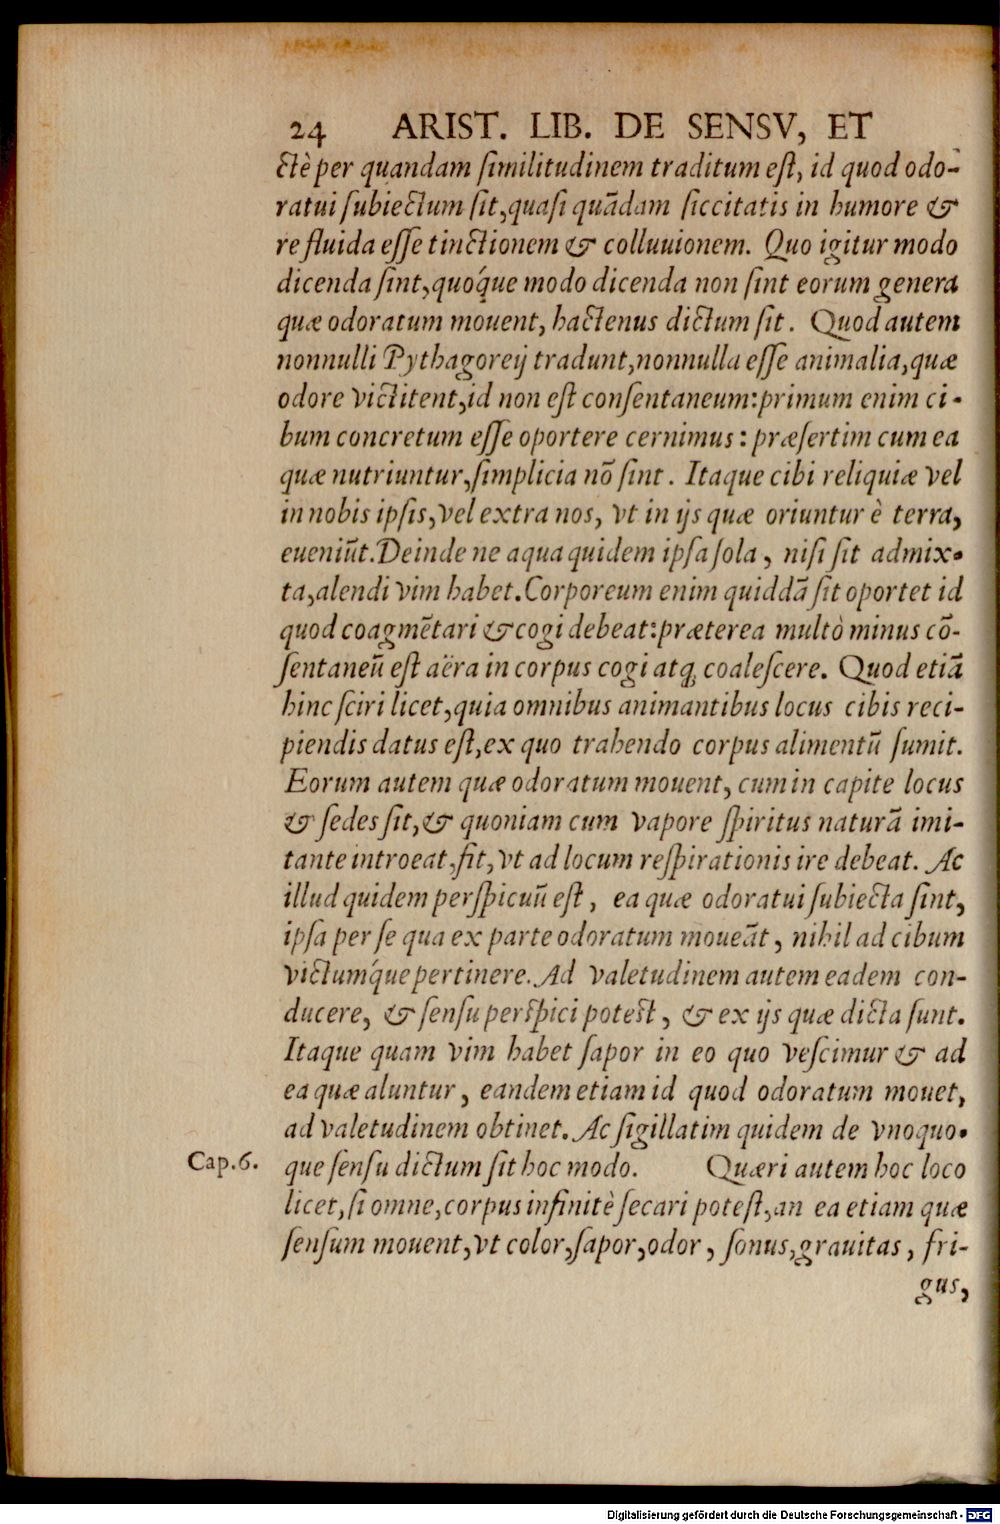 24 ARIST. LIB. DE SENSV, ET
ctè per quandam ſimilitudinem traditum eſt, id quod odo-
ratui ſubiectum ſit, quaſi quãdam ſiccitatis in humore &
re fluida eſſe tinctionem & colluuionem. Quo igitur modo
dicenda ſint, quoq́ue modo dicenda non ſint eorum genera
quæ odoratum mouent, hactenus dictum ſit. Quod autem
nonnulli Pythagoreij tradunt, nonnulla eſſe animalia, quæ
odore victitent, id non eſt conſentaneum: primum enim ci-
bum concretum eſſe oportere cernimus: præſertim cum ea
quæ nutriuntur, ſimplicia nõ ſint. Itaque cibi reliquiæ vel
in nobis ipſis, vel extra nos, vt in ijs quæ oriuntur è terra,
eueniũt. Deinde ne aqua quidem ipſa ſola, niſi ſit admix-
ta, alendi vim habet. Corporeum enim quiddã ſit oportet id
quod coagmẽtari & cogi debeat: præterea multò minus cõ-
ſentaneũ eſt aëra in corpus cogi atq; coaleſcere. Quod etiã
hinc ſciri licet, quia omnibus animantibus locus cibis reci-
piendis datus eſt, ex quo trahendo corpus alimentũ ſumit.
Eorum autem quæ odoratum mouent, cum in capite locus
& ſedes ſit, & quoniam cum vapore ſpiritus naturã imi-
tante introeat, fit, vt ad locum reſpirationis ire debeat. Ac
illud quidem perſpicuũ eſt, ea quæ odoratui ſubiecta ſint,
ipſa per ſe qua ex parte odoratum moueãt, nihil ad cibum
victumq́ue pertinere. Ad valetudinem autem eadem con-
ducere, & ſenſu perſpici poteſt, & ex ijs quæ dicta ſunt.
Itaque quam vim habet ſapor in eo quo veſcimur & ad
ea quæ aluntur, eandem etiam id quod odoratum mouet,
ad valetudinem obtinet. Ac ſigillatim quidem de vnoquo-
Cap. 6. que ſenſu dictum ſit hoc modo. Quæri autem hoc loco
licet, ſi omne, corpus infinitè ſecari poteſt, an ea etiam quæ
ſenſum mouent, vt color, ſapor, odor, ſonus, grauitas, fri-
gus,
Digitalisierung gefördert durch die Deutsche Forschungsgemeinschaft - DFG